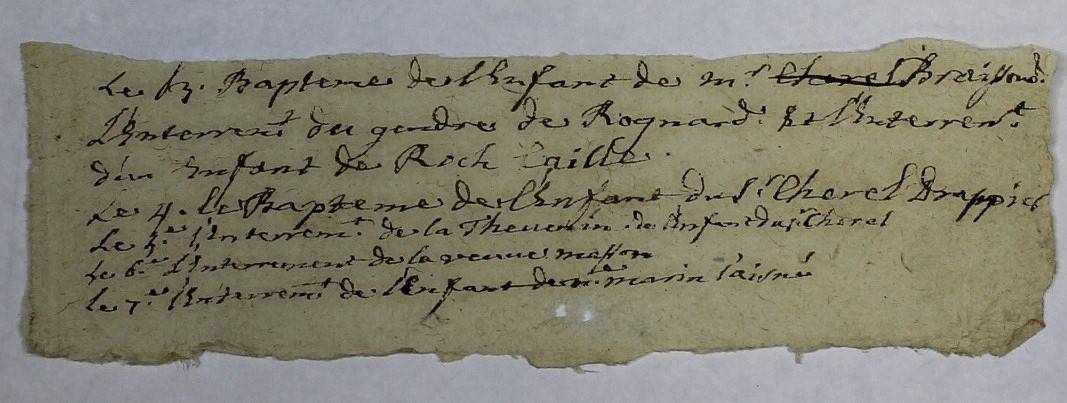 Le 3. Bapteme de l'Enfant de mr. Cherel Braissoud.
L'Enterremt. du gendre de Rognard. Et l'Enterremt.
d'un Enfant de Roch Caille.
Le 4. le Bapteme de l'Enfant du Sr. Cherel Drappier
Le 5.e l'Enterremt. de la Thevenin. de l'Enfant du Sr. Cherel
Le 6.e L'Enterrement de la veuve masson
Le 7.e l'Enterremt. de l'Enfant de marin l'aisné